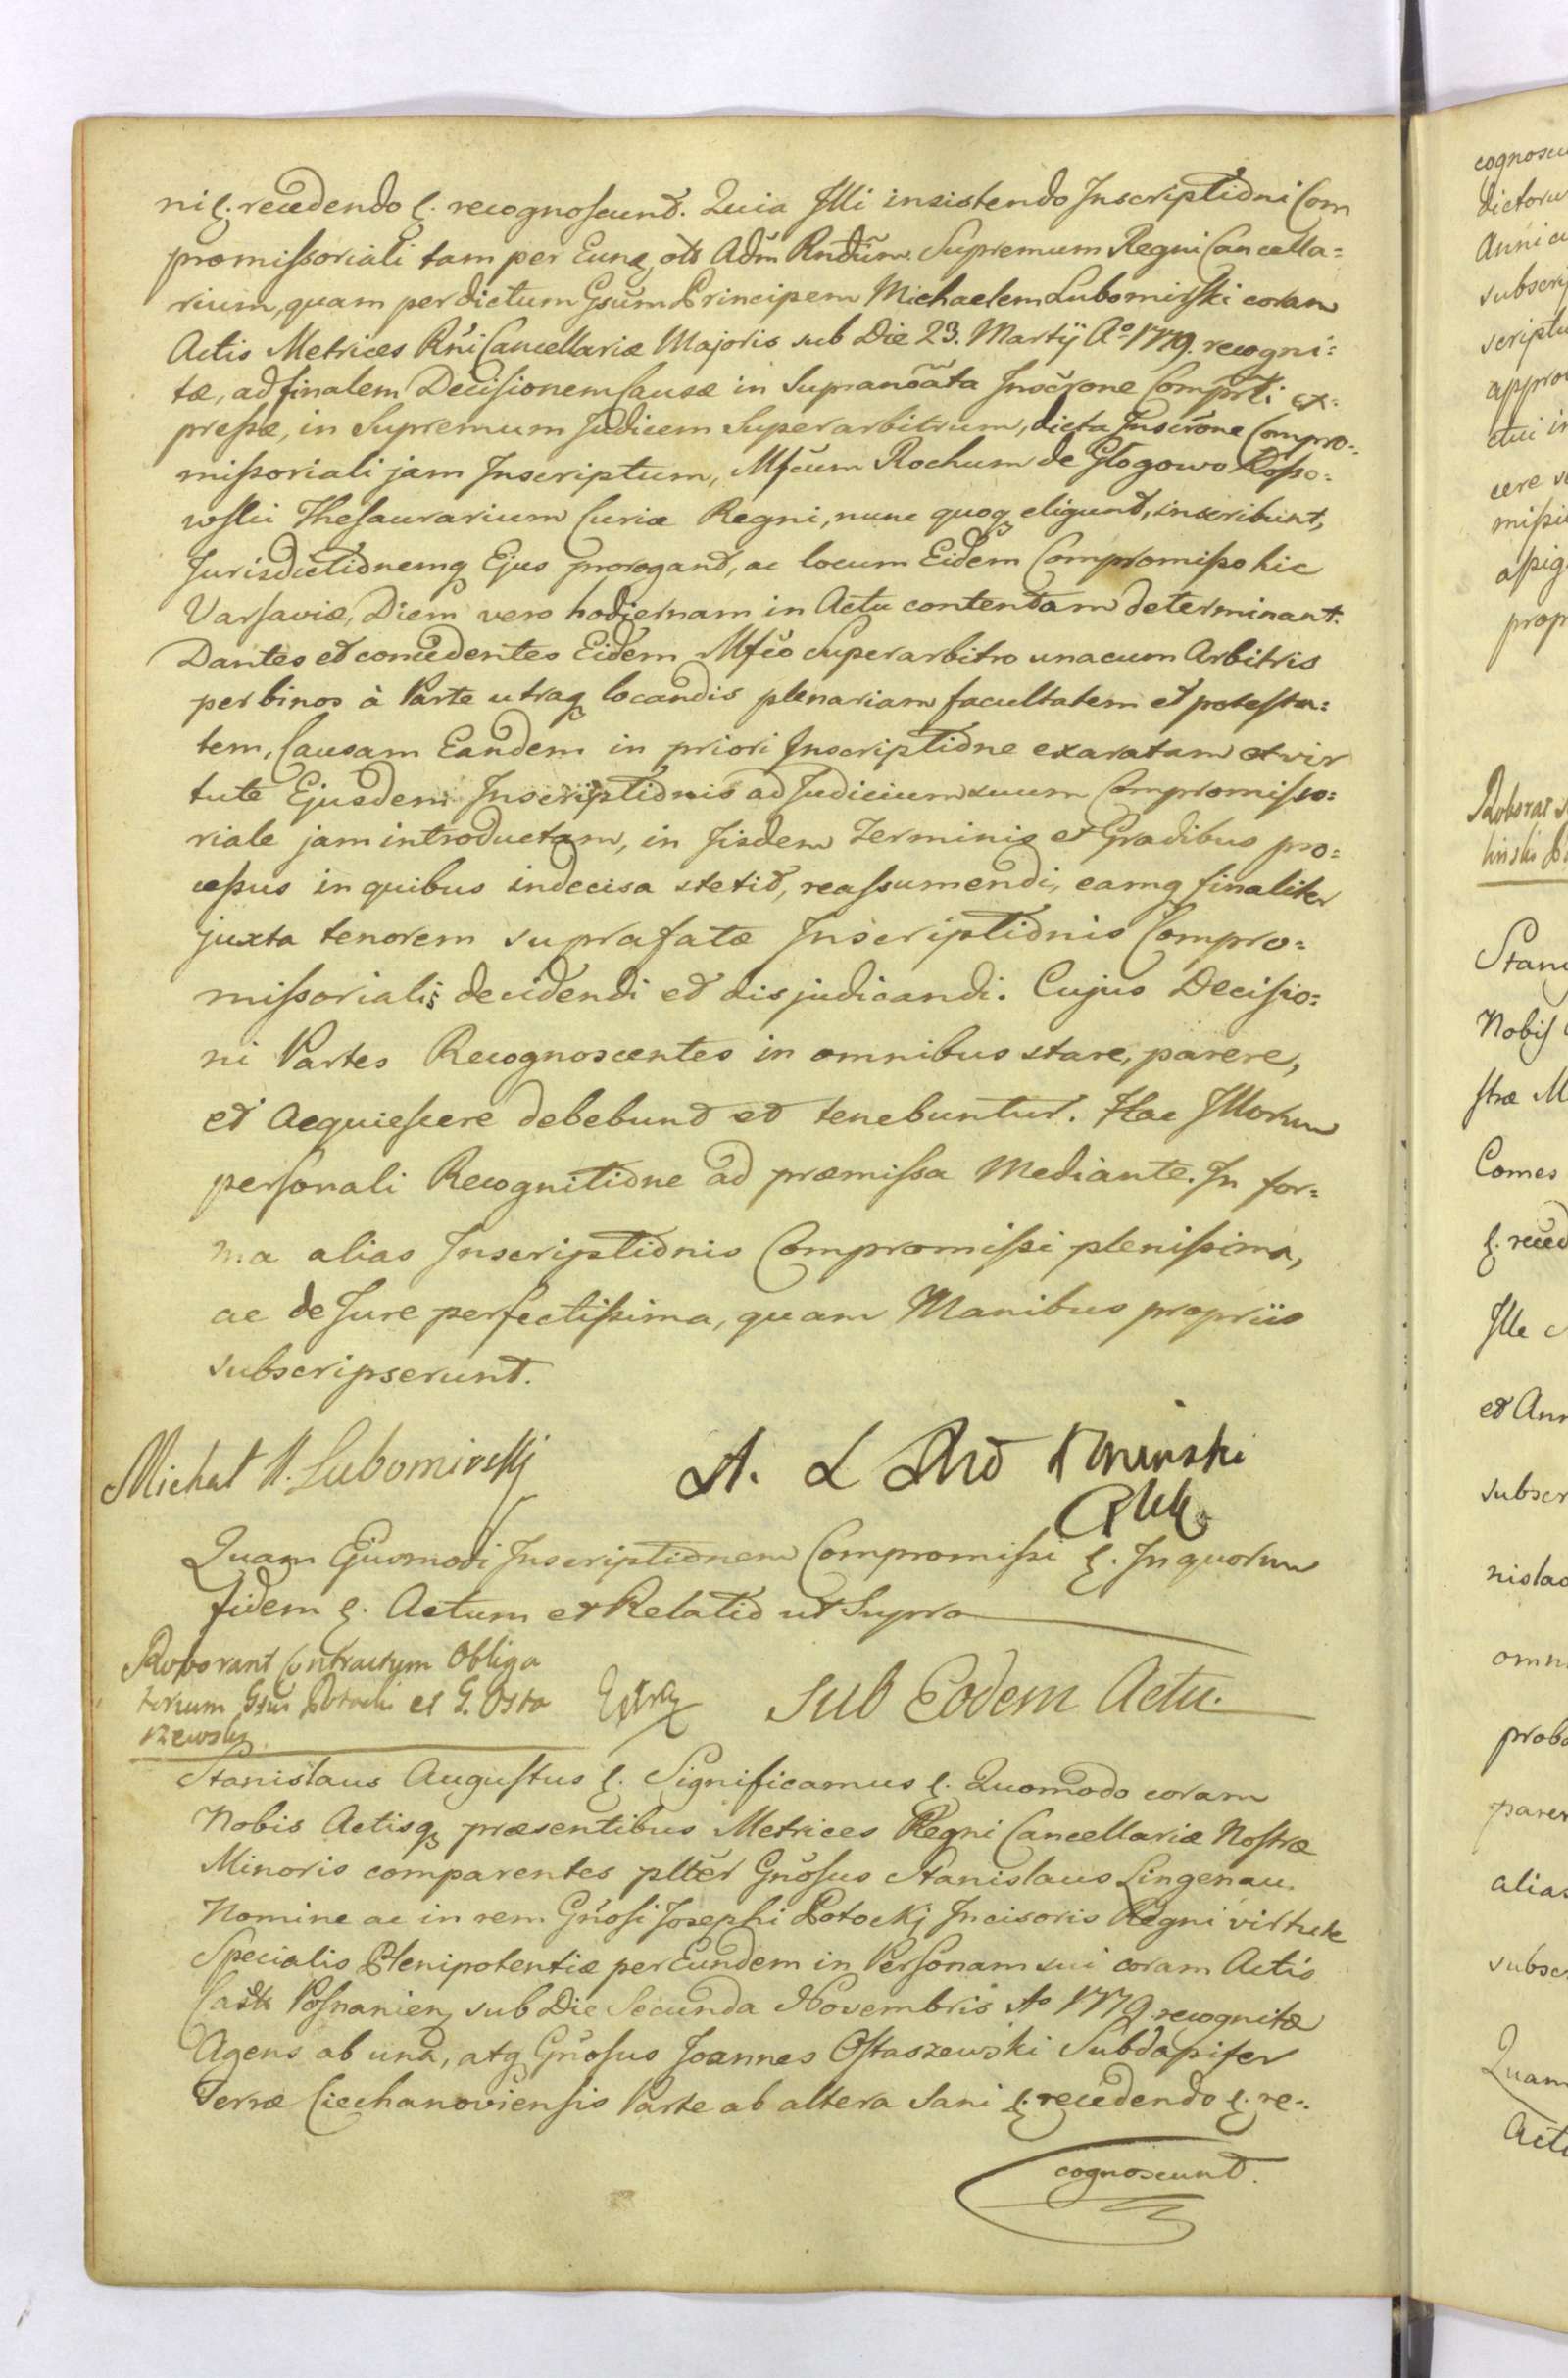 ni &. recedendo &. recognoscunt. Quia Illi insistendo Inscriptioni Com
promissoriali tam per Eunq ols Adm Rndum Supremum Regni Cancella=
rium, quam per dictum Gsum Principem Michaelem Lubomirski coram
Actis Metrices Rni Cancellariæ Majoris sub Die 23. Martij Ao 1779. recogni=
tæ, ad finalem Decisionem Causæ in Supranoāta Inscrone Comprti ex=
pressæ, in Supremum Judicem Superarbitrum, dicta Inscrone Compro=
missoriali jam Inscriptum, Mfcum Rochum de Głogowo Kosso=
wski Thesaurarium Curiæ Regni, nunc quoq eligunt, inscribunt,
Jurisdictionemq Ejus prorogant, ac locum Eidem Compromisso hic
Varsaviæ, Diem vero hodiernam in Actu contentam determinant.
Dantes et concedentes Eidem Mfco Superarbitro unacum Arbitris
per binos à Parte utraq locandis plenariam facultatem et potesta=
tem, Causam Eandem in priori Inscriptione exaratam et vir
tute Ejusdem Inscriptionis ad Judicium suum Compromisso=
riale jam introductam, in Iisdem Terminis et Gradibus pro=
cessus in quibus indecisa stetit, reassumendi, eamq finaliter
juxta tenorem suprafatæ Inscriptionis Compro=
missorialis decidendi et disjudicandi. Cujus Decisio=
ni Partes Recognoscentes in omnibus stare, parere,
et Acquiescere debebunt et tenebuntur. Hac Illorum
personali Recognitione ad præmissa Mediante. In for=
ma alias Inscriptionis Compromissi plenissima,
ac de Jure perfectissima, quam Manibus propriis
subscripserunt.
Michał Lubomirskij
A. Poninski
Quam Ejusmodi Inscriptionem Compromissi &. In quorum
fidem &. Actum et Relatio ut Supra
Roborant Contractum Obliga
torium Gsus Potocki et G. Osta
szewski
Extra
Sub Eodem Actu.
Stanislaus Augustus &. Significamus &. Quomodo coram
Nobis Actisq præsentibus Metrices Regni Cancellariæ Nostræ
Minoris comparentes plter Gnosus Stanislaus Lingenau
Nomine ac in rem Gnosi Josephi Potockij Incisoris Regni virtute
Specialis Plenipotentiæ per Eundem in Personam sui coram Actis
Castr Posnanien, sub Die Secunda Novembris Ao 1779 recognitæ
Agens ab una, atq Gnosus Joannes Ostaszewski Subdapifer
Terræ Ciechanoviensis Parte ab altera Sani &. recedendo &. re-
cognoscunt.
cognoscu
dictoru
Anni
subscri
scriptu
appro
missi
assig
prop
Roborat
Stani
Nobis
stræ M
Comes
&. reced
Ille
et Ann
subscr
nislao
omni
proba
parer
alias
subsc
Quam
Actu